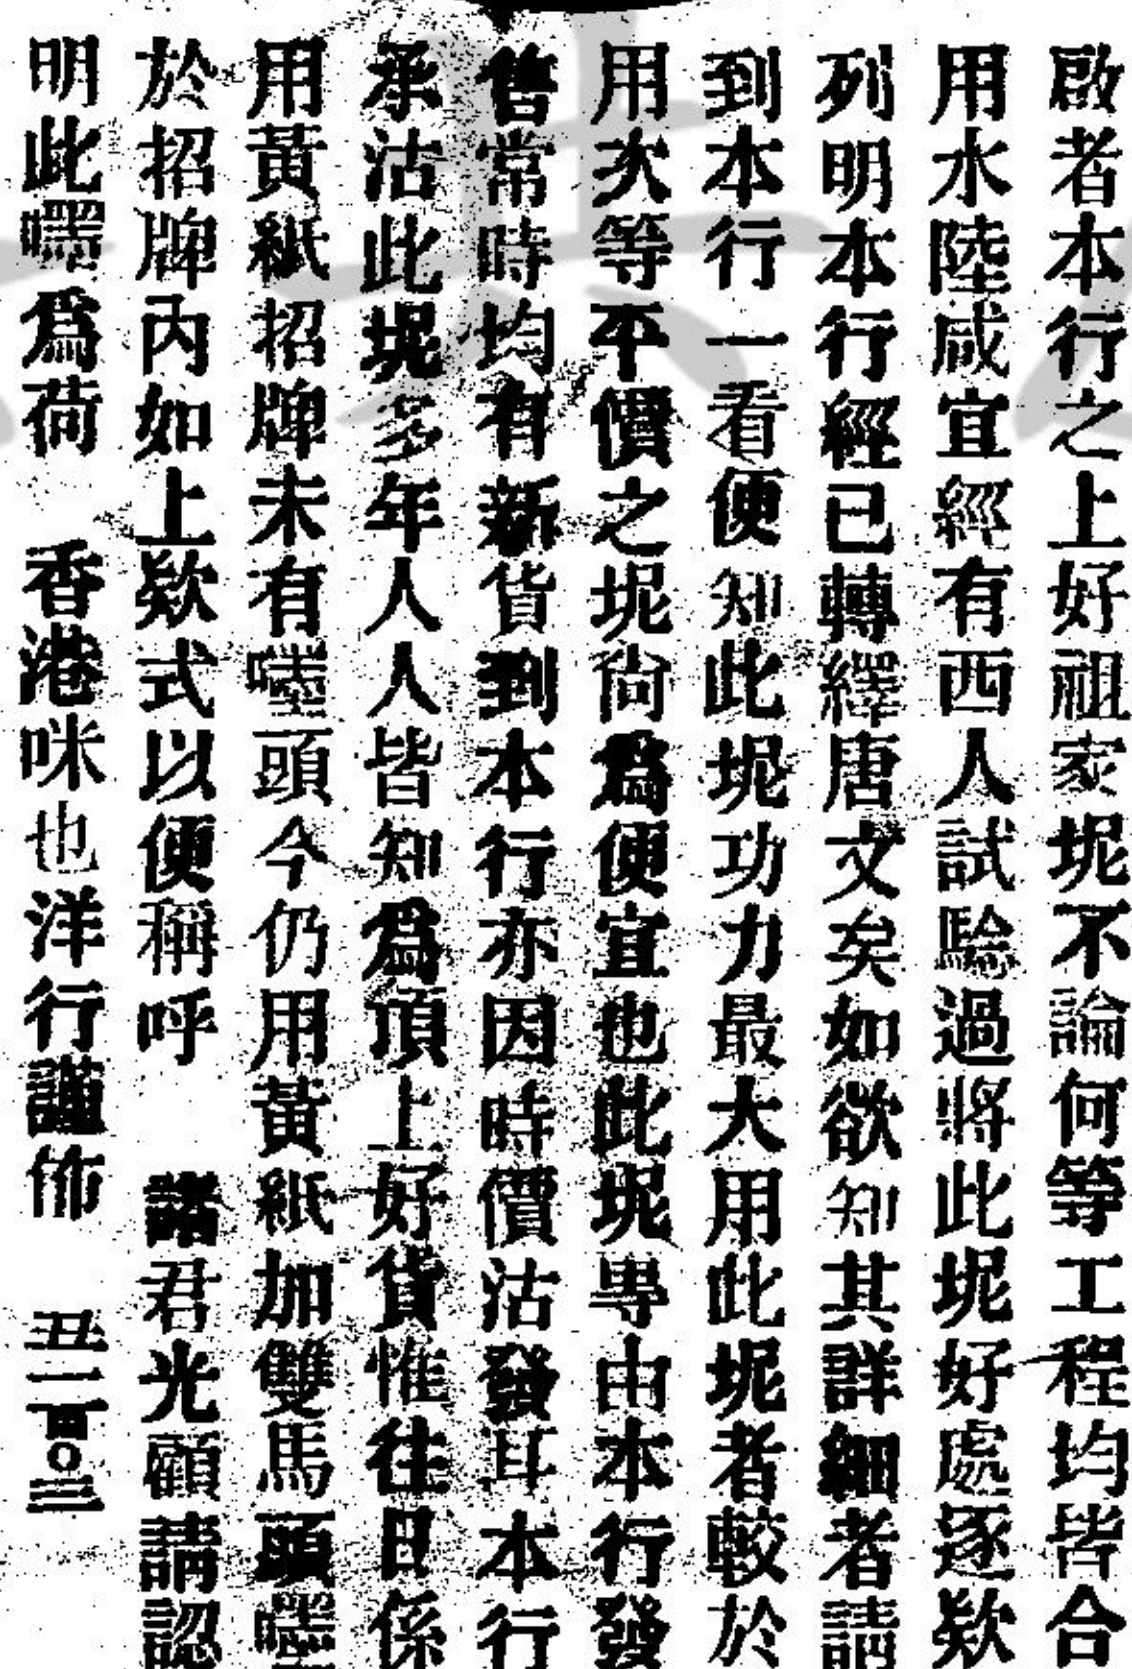 啟者本行之上好祖家坭不論何等工程均皆合
用水陸咸宜經有西人試驗過將此坭好處逐欵
列明本行經已轉繹唐文矣如欲知其詳細者請
到本行一看便知此坭功力最大用此坭者較於
用次等平價之坭尙爲便宜也此坭專由本行發
售常時均有新貨到本行亦因時價沽發耳本行
承沽此坭多年人人皆知爲頂上好貨惟往日係
用黃紙招牌未有嘜頭今仍用黃紙加雙馬頭嘿
於招牌內如上欵式以便稱呼　諸君光顧請認
明此嘿爲荷　香港咪也洋行謹佈　丑一百〇三